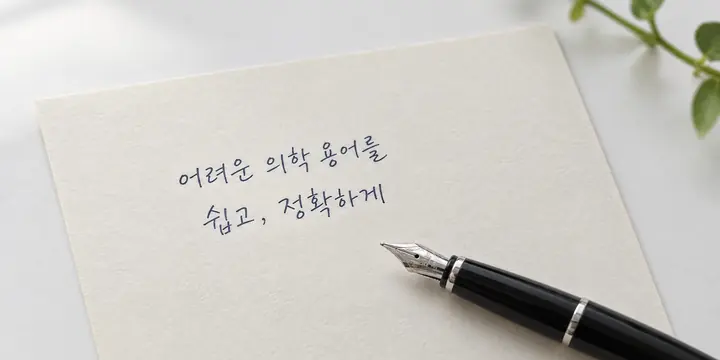 어려운 의학 용어를
쉽고, 정확하게